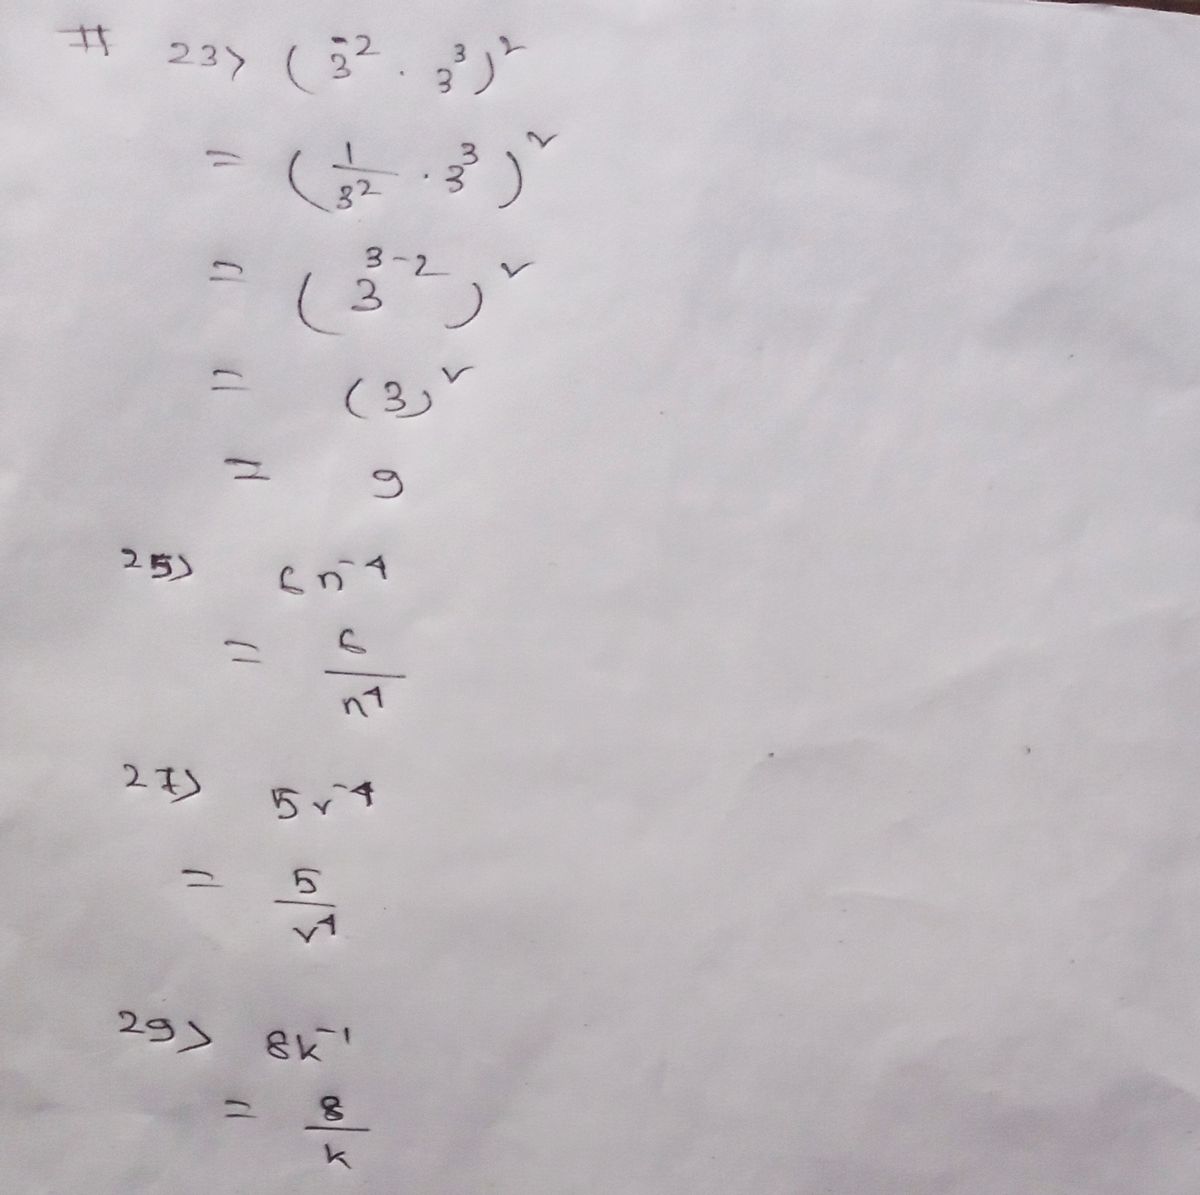 # 23> (3⁻² · 3³)²
= (1/3² · 3³)²
= (3³⁻²)²
= (3)²
= 9
25) 6n⁻⁴
= 6/n⁴
27) 5v⁻⁴
= 5/v⁴
29> 8k⁻¹
= 8/k